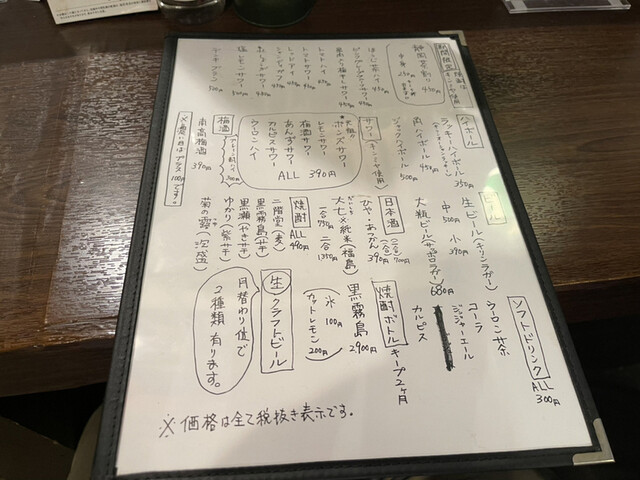 期間限定
静岡茶割り
450円
ほうじ茶ハイ
トマトハイ
トマトサワー
レッドアイ
シャンディガフ
塩レモンサワー
ハイボール
ラッキーハイボール 350円
角ハイボール 450円
ジャックハイボール 500円
サワー
(キンミヤ使用)
ポンズサワー
レモンサワー
梅酒サワー
あんずサワー
カルピスサワー
ウーロンハイ
ALL 390円
梅酒
南高梅酒 390円
※濃い目はプラス100円です。
ビール
生ビール(キリンラガー)
中 500円 小 390円
大瓶ビール(サッポロラガー) 680円
日本酒
ひや・あつかん
(一合) 390円
(二合) 700円
大七 純米(福島)
一合 750円
二合 1,350円
焼酎
ALL 490円
二階堂(麦)
黒霧島(芋)
黒瀬(やき芋)
ゆかり(紫芋)
菊の露(泡盛)
ソフトドリンク
ALL 300円
ウーロン茶
コーラ
ジンジャーエール
カルピス
焼酎ボトル
キープ2ヶ月
黒霧島 2900円
氷 100円
カットレモン 200円
生クラフトビール
月替わり位で
2種類有ります。
※価格は全て税抜き表示です。